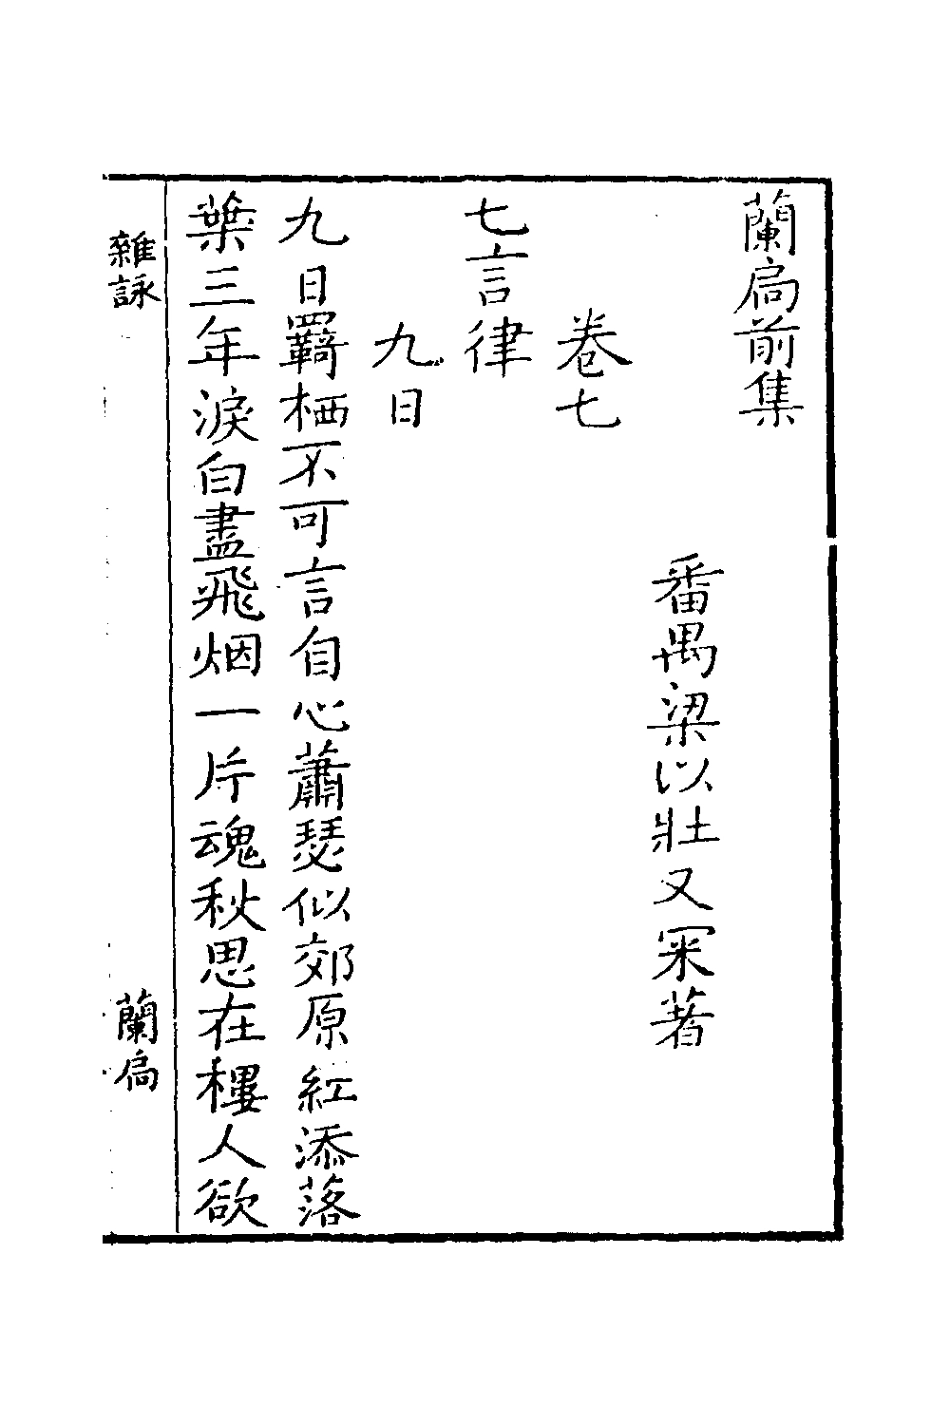 蘭扄前集
番禺梁以壯又深著
卷七
七言律
九日
九日羇栖不可言自心蕭瑟似郊原紅添落
葉三年淚白盡飛烟一片魂秋思在樓人欲
雜詠
蘭扄